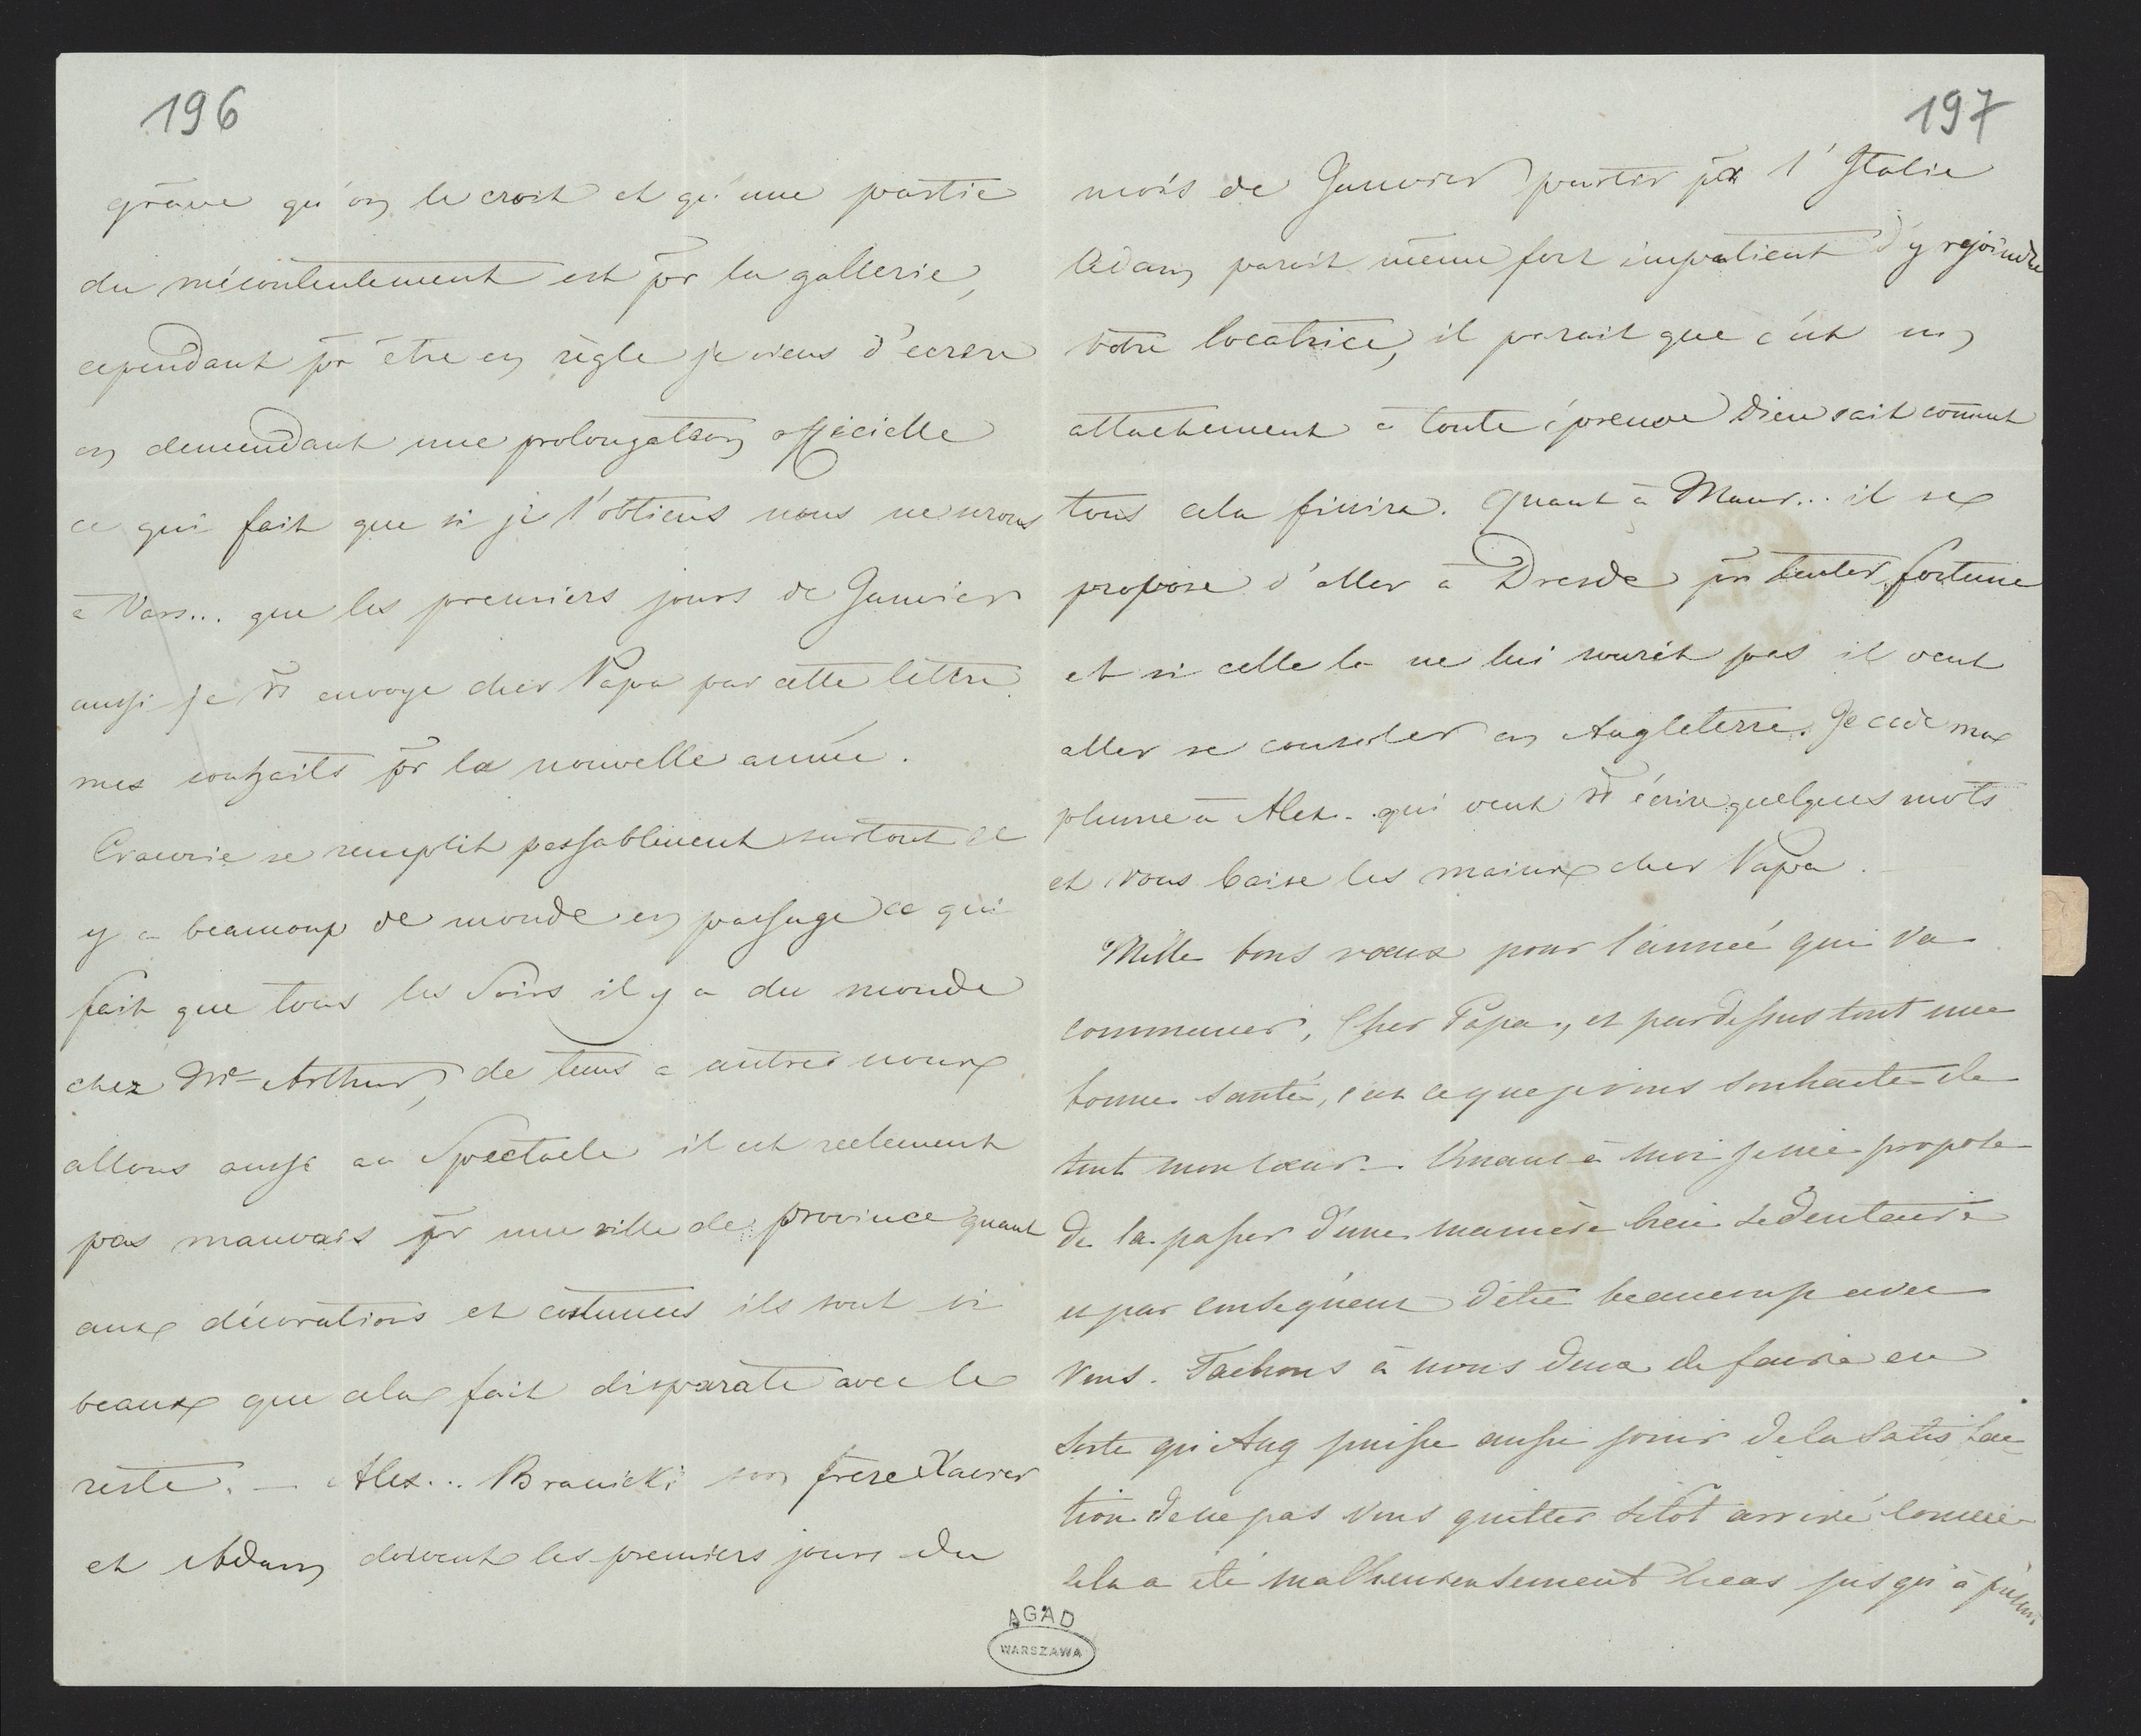 196
grâve qu'on le croit et qu'une partie
du mécontentement est pr la gallerie,
cependant pr être en règle je viens d'ecrire
en demendant une prolongation officielle
ce qui fait que si je l'obtiens nous ne serons
à Vars... que les premiers jours de Janvier
aussi je vs envoye cher Papa par cette lettre
mes souhaits pr la nouvelle année.
Cracovie se remplit passablement surtout il
y a beaucoup de monde en passage ce qui
fait que tous les Soirs il y a du monde
chez Me Arthur, de tems a autres nous
allons aussi au Spectacle il est reelement
pas mauvais pr une ville de province quant
aux décorations et costumes ils sont si
beaux que cela fait disparate avec le
reste. — Alex... Branicki son frère Xavier
et Adam doivent les premiers jours du
197
mois de Janvier partir pr l'Italie
Adam parait même fort impatient d'y rejoindre
votre locatrice, il parait que c'est un
attachement à toute épreuve Dieu sait comment
tous cela finira. Quant à Maur... il se
propose d'aller à Dresde pr tenter fortune
et si celle la ne lui sourit pas il veut
aller se consoler en Angleterre. Je cède ma
plume à Alex... qui veut vs écrire quelques mots
et vous baise les mains cher Papa.
Mille bons vœux pour l'année qui va
commencer, Cher Papa, et pardessus tout une
bonne santé, c'est ce que je vous souhaite de
tout mon cœur. Quant à moi je me propose
de la passer d'une manière bien sedentaire
et par conséquent d'être beaucoup avec
vous. Tachons à nous deux de faire en
sorte qu'Aug puisse aussi jouir de la satisfac-
tion de ne pas vous quitter sitôt arrivé comme
cela a été malheureusement le cas jusqu'à présent
AGAD
WARSZAWA